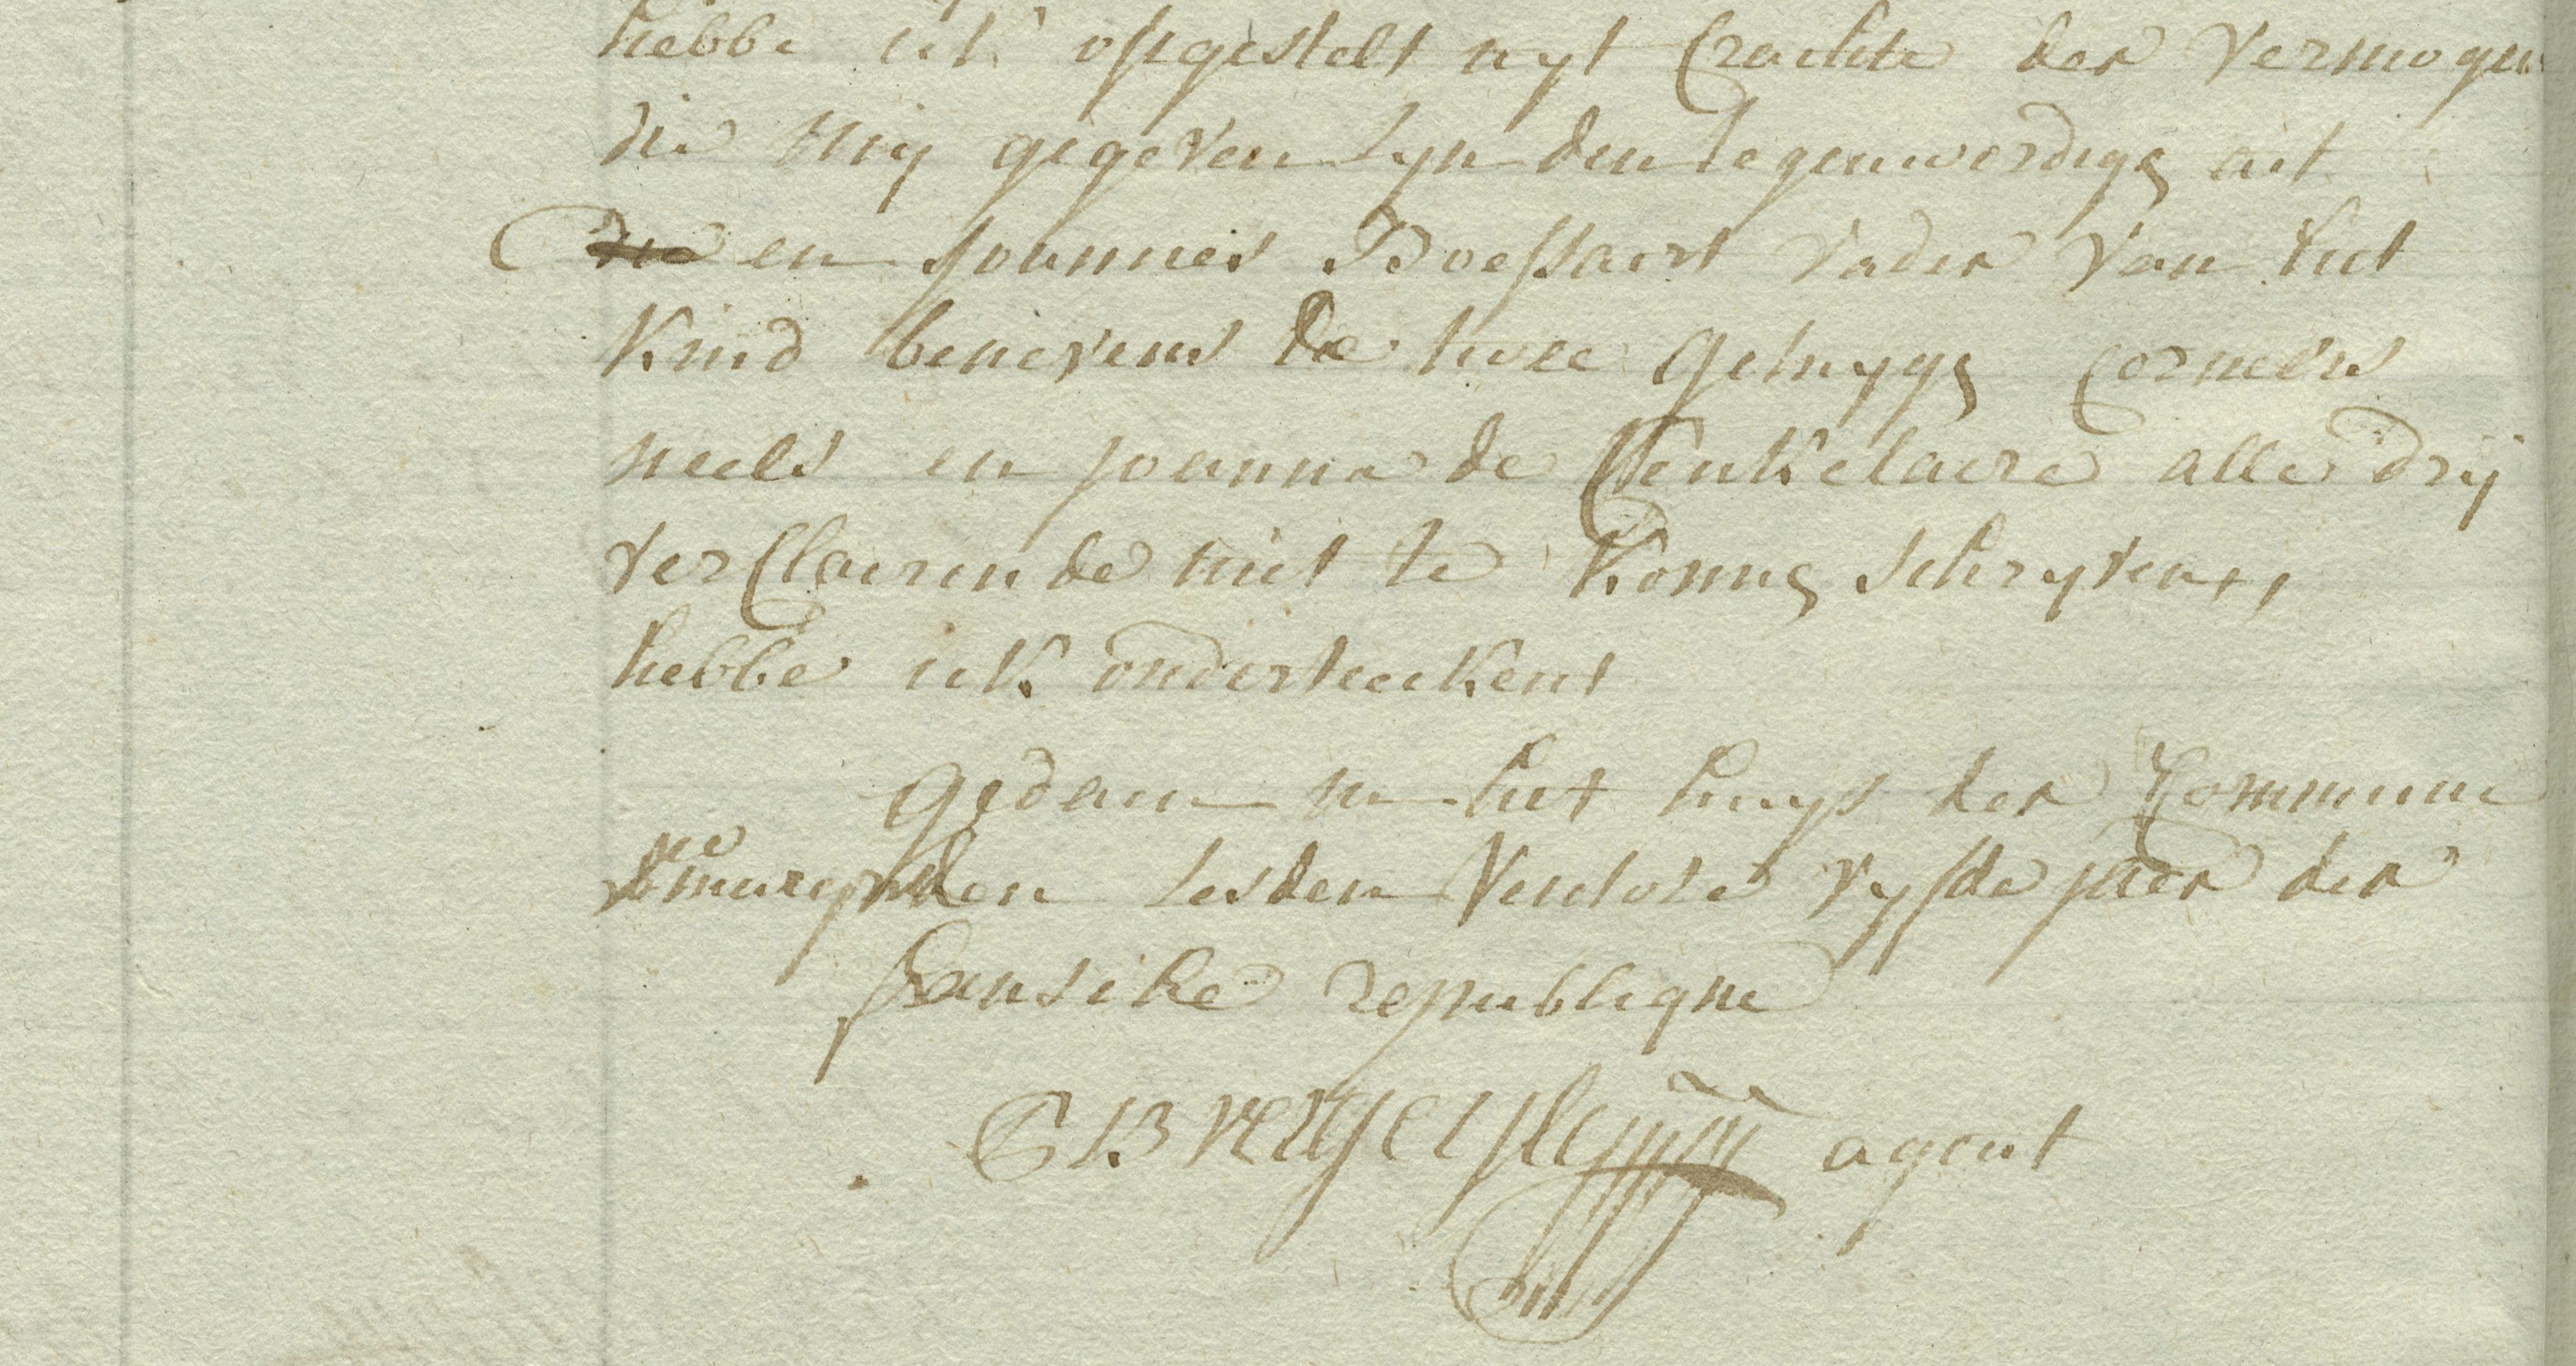 hebbe ick opgestelt uyt Crachte der vermogen
die mij gegeven syn den tegenwordigen act
en Joannes Boessart vader van het
Kind benevens de twee getuygen Cornelis
neels en joanna de Cenkelaere alle drij
verClaerende niet te konnen schryven,,
hebbe ick onderteekent
Gedaen in het huys der Commune
den sesden Ventose vyfde jaer der
fransche republique
agent